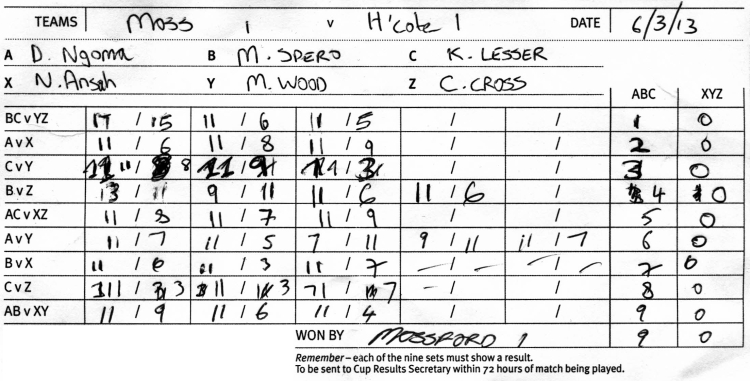 TEAMS Moss 1 v H'cote 1 DATE 6/3/13
A D. Ngoma B M. SPERO C K. LESSER
X N. Ansah Y M. WOOD Z C. CROSS
ABC XYZ
BC v YZ 17 / 15 11 / 6 11 / 5 / / 1 0
A v X 11 / 6 11 / 8 11 / 9 / / 2 0
C v Y 11 / 8 11 / 11 / / / 3 0
B v Z 13 / 11 9 / 11 11 / 6 11 / 6 / 4 0
AC v XZ 11 / 8 11 / 7 11 / 9 / / 5 0
A v Y 11 / 7 11 / 5 7 / 11 9 / 11 11 / 7 6 0
B v X 11 / 6 11 / 3 11 / 7 / / 7 0
C v Z 11 / 3 11 / 3 11 / 7 / / 8 0
AB v XY 11 / 9 11 / 6 11 / 4 / / 9 0
WON BY MOSSFORD 1 9 0
Remember – each of the nine sets must show a result.
To be sent to Cup Results Secretary within 72 hours of match being played.